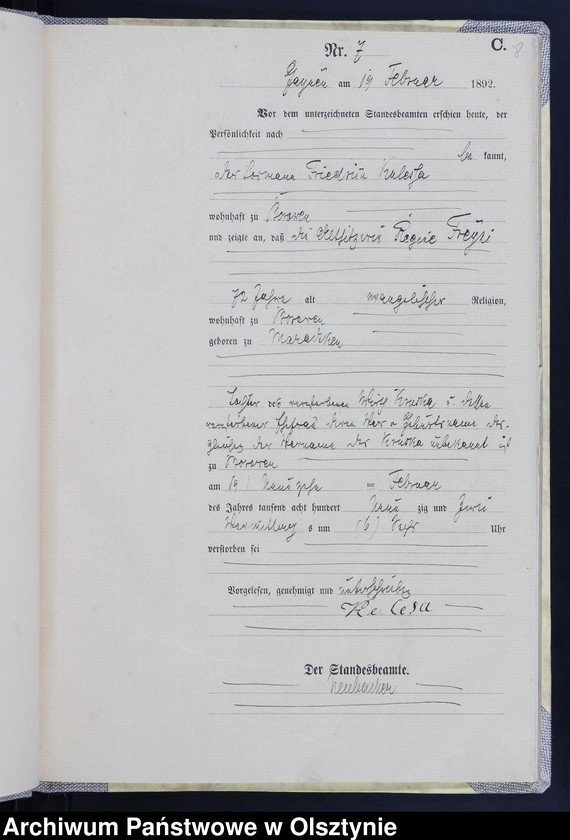 Nr. 7
C.
8
am 19 Februar 1892.
Vor dem unterzeichneten Standesbeamten erschien heute, der
Persönlichkeit nach
be kannt,
der Losmann Friedrich Kalessa
wohnhaft zu Borowen
und zeigte an, daß die Altsitzerin Regine
72 Jahre alt evangelischer Religion,
wohnhaft zu Borowen
geboren zu Maradtken
Tochter des verstorbenen Wirth Kruska u. dessen
verstorbener Ehefrau deren Vor u Geburtsname des-
gleichen der Vorname des Kruska unbekannt ist
zu Borowen
am 19 Neunzehn ten Februar
des Jahres tausend acht hundert Neun zig und Zwei
Vormittag s um (6) Sechs Uhr
verstorben sei
Vorgelesen, genehmigt und unterschrieben
Kalessa
Der Standesbeamte.
Archiwum Państwowe w Olsztynie